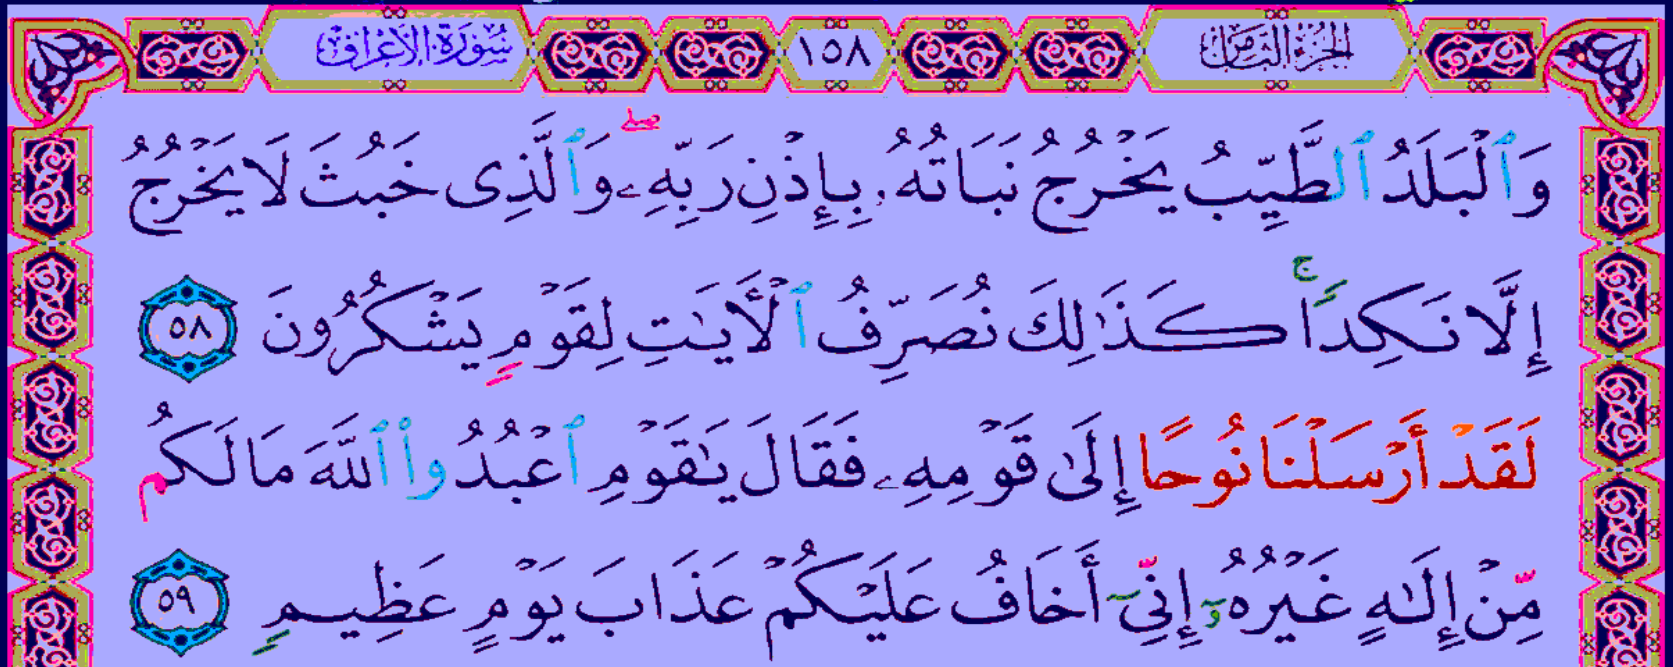 سُورَةُ الأَعْرَافِ ١٥٨ الجُزْءُ الثَّامِنُ
وَٱلْبَلَدُ ٱلطَّيِّبُ يَخْرُجُ نَبَاتُهُۥ بِإِذْنِ رَبِّهِۦ ۖ وَٱلَّذِى خَبُثَ لَا يَخْرُجُ
إِلَّا نَكِدًا ۚ كَذَٰلِكَ نُصَرِّفُ ٱلْأَيَٰتِ لِقَوْمٍ يَشْكُرُونَ ٥٨
لَقَدْ أَرْسَلْنَا نُوحًا إِلَىٰ قَوْمِهِۦ فَقَالَ يَٰقَوْمِ ٱعْبُدُوا۟ ٱللَّهَ مَا لَكُم
مِّنْ إِلَٰهٍ غَيْرُهُۥٓ إِنِّىٓ أَخَافُ عَلَيْكُمْ عَذَابَ يَوْمٍ عَظِيمٍ ٥٩